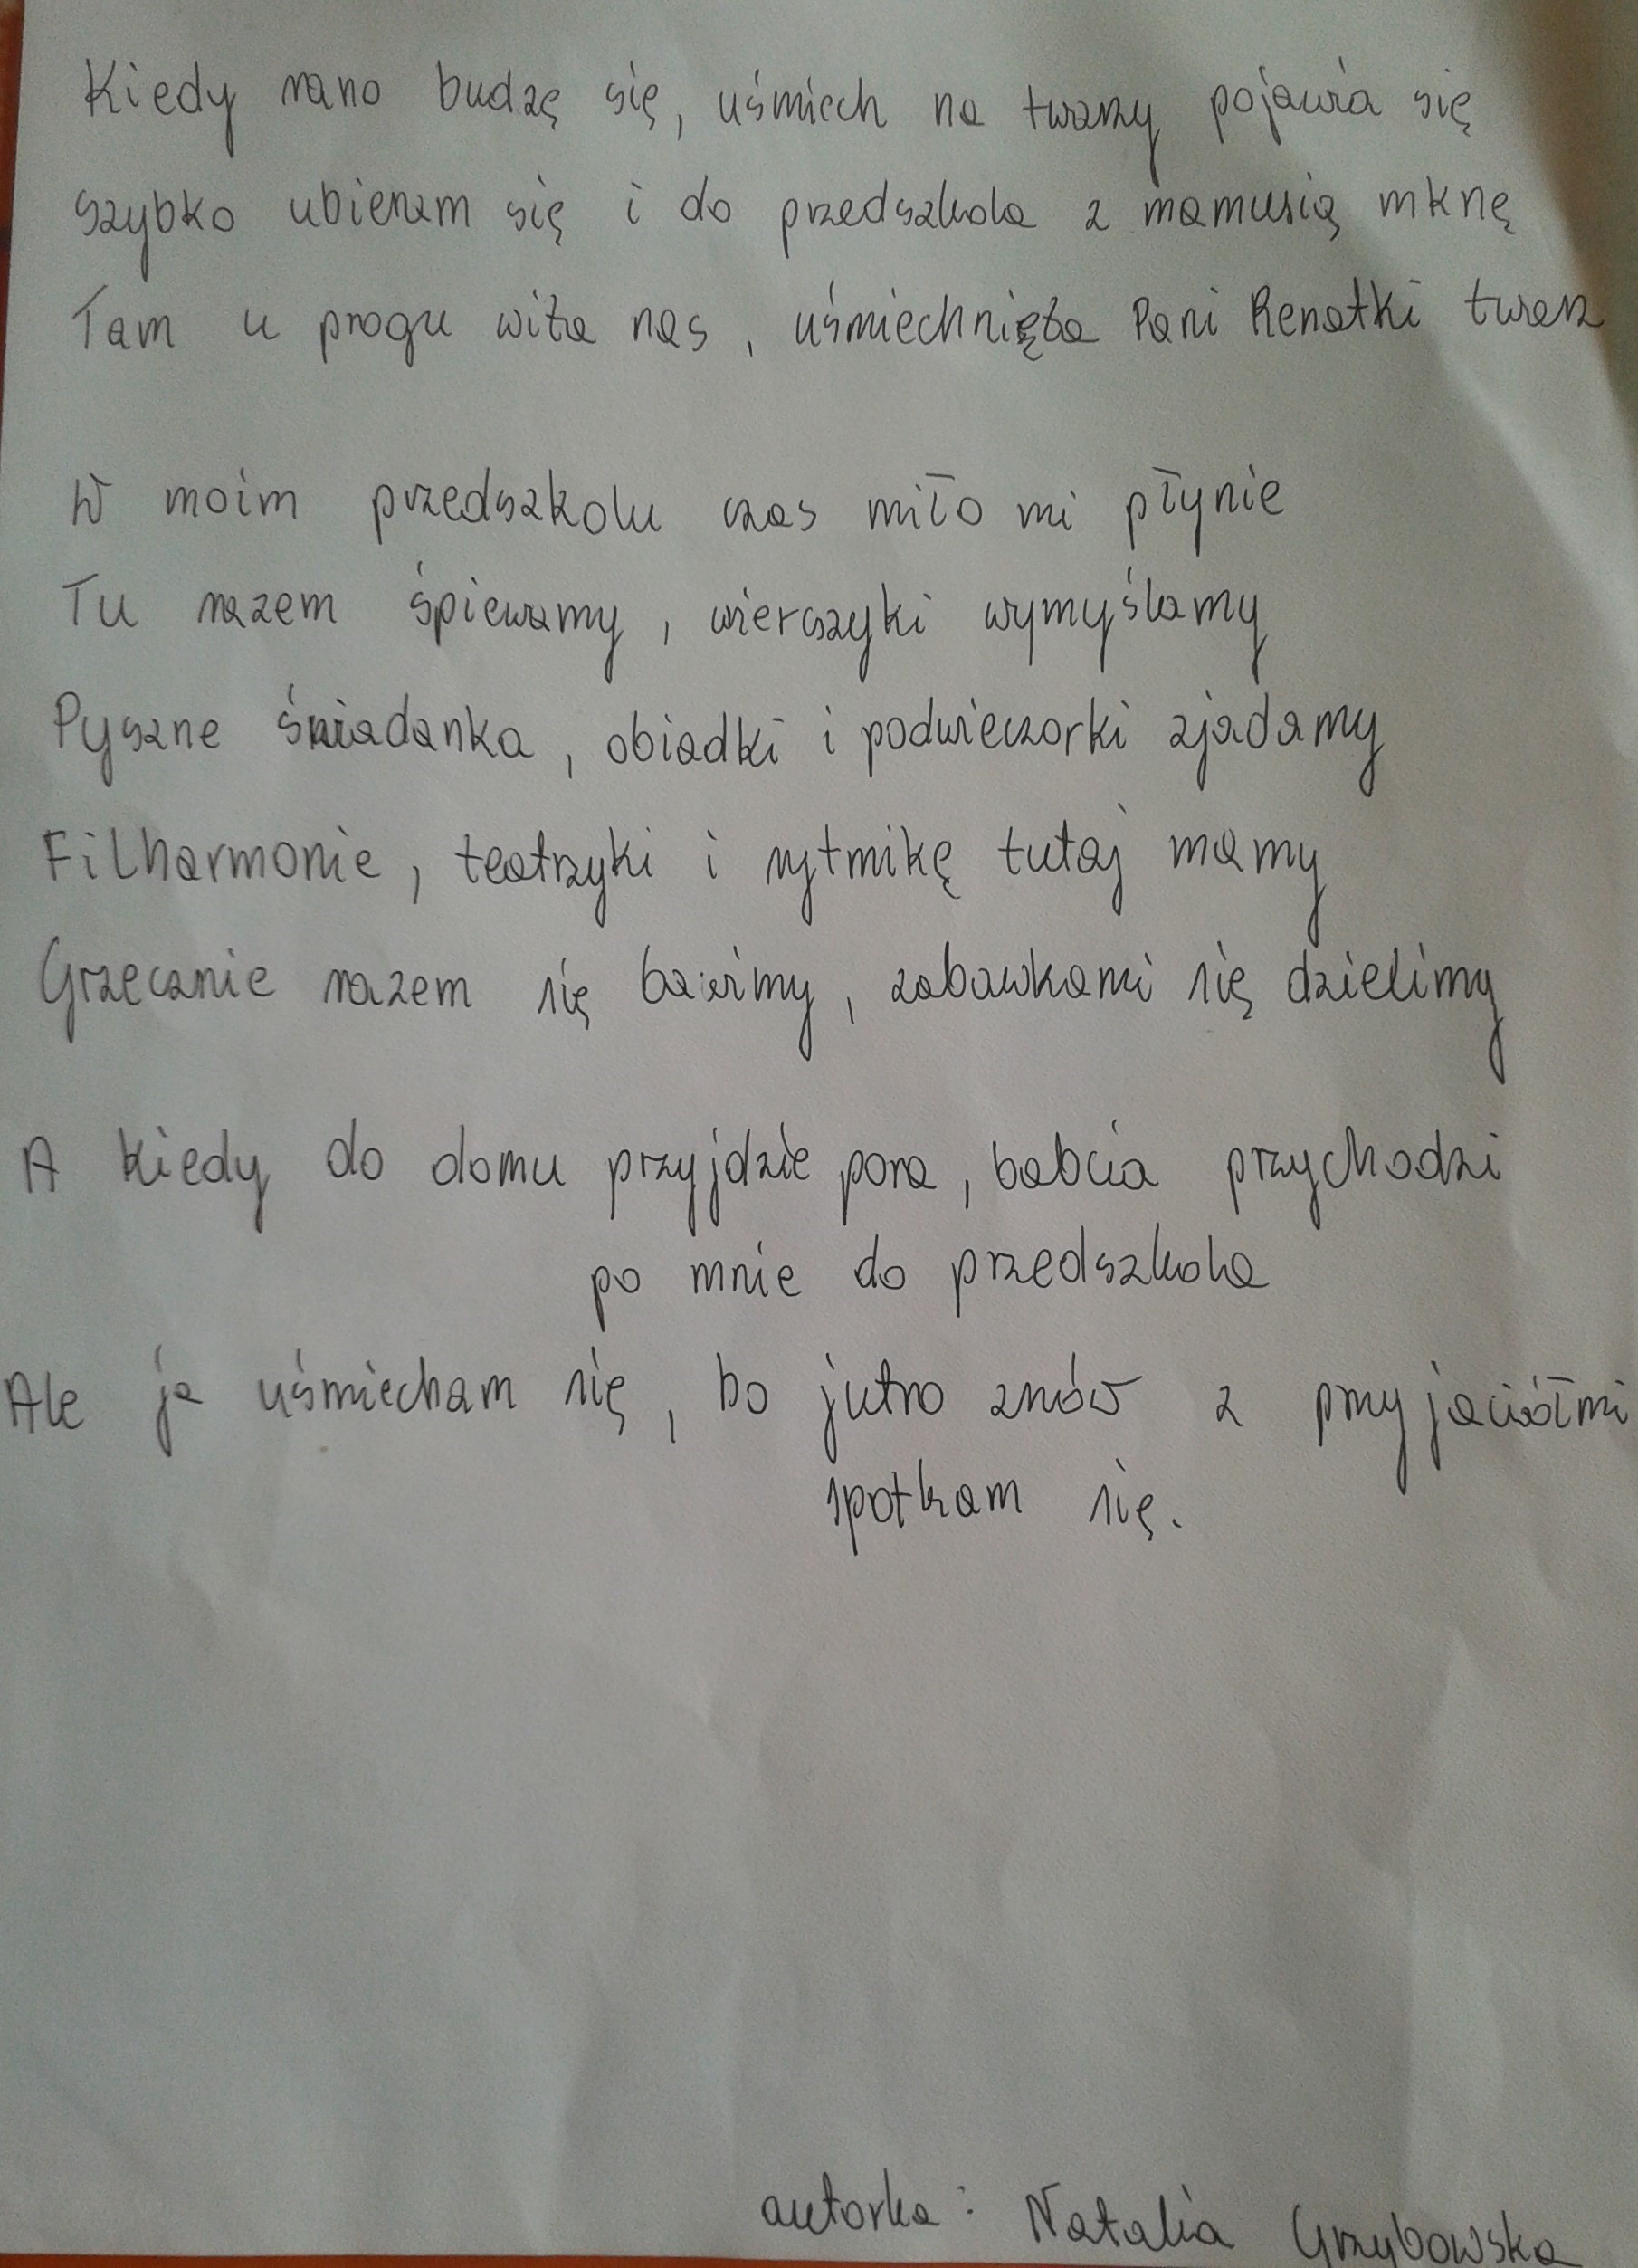 Kiedy rano budzę się, uśmiech na twarzy pojawia się
szybko ubieram się i do przedszkola z mamusią mknę
Tam u progu wita nas, uśmiechnięta Pani Renatki twarz
W moim przedszkolu czas miło mi płynie
Tu razem śpiewamy, wierszyki wymyślamy
Pyszne śniadanka, obiadki i podwieczorki zjadamy
Filharmonie, teatrzyki i rytmikę tutaj mamy
Grzecznie razem się bawimy, zabawkami się dzielimy
A kiedy do domu przyjdzie pora, babcia przychodzi
po mnie do przedszkola
Ale ja uśmiecham się, bo jutro znów z przyjaciółmi
spotkam się.
autorka: Natalia Grzybowska